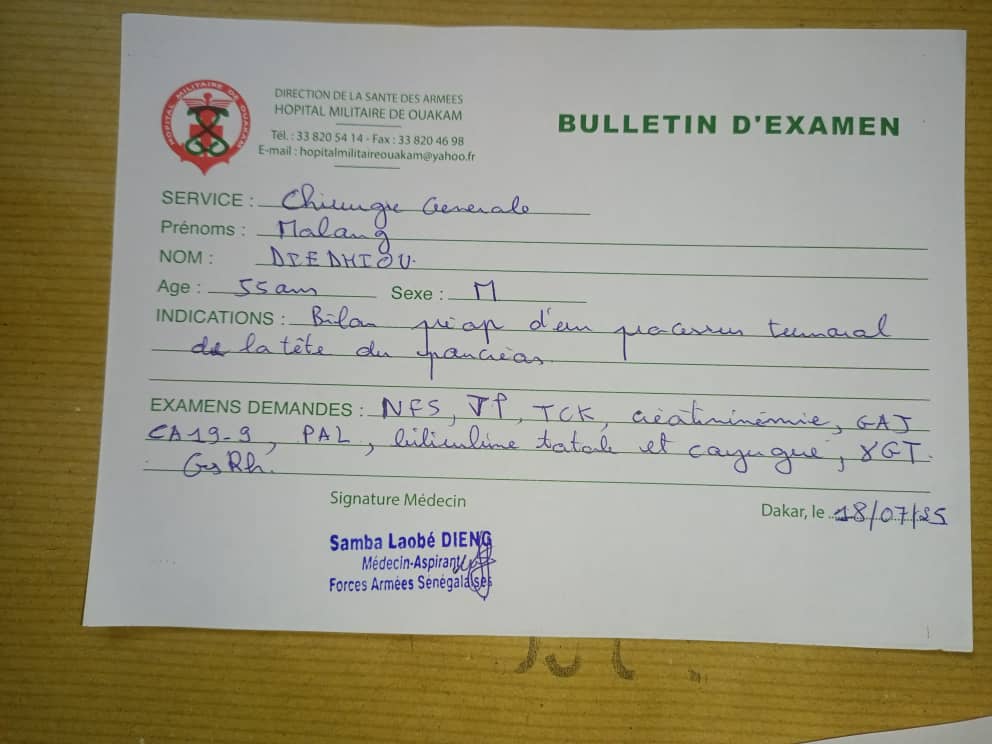 HOPITAL MILITAIRE DE OUAKAM
DIRECTION DE LA SANTE DES ARMEES
HOPITAL MILITAIRE DE OUAKAM
Tél. : 33 820 54 14 - Fax : 33 820 46 98
E-mail : hopitalmilitaireouakam@yahoo.fr
BULLETIN D'EXAMEN
SERVICE : Chirurgie Generale
Prénoms : Malang
NOM : DIEDHIOU
Age : 55 ans Sexe : M
INDICATIONS : Bilan préop d'un processus tumoral
de la tête du pancréas
EXAMENS DEMANDES : NFS, TP, TCK, créatininémie, GAJ
CA19-9, PAL, bilirubine totale et conjuguée, γGT.
GsRh.
Signature Médecin
Dakar, le 18/07/25
Samba Laobé DIENG
Médecin-Aspirant
Forces Armées Sénégalaises